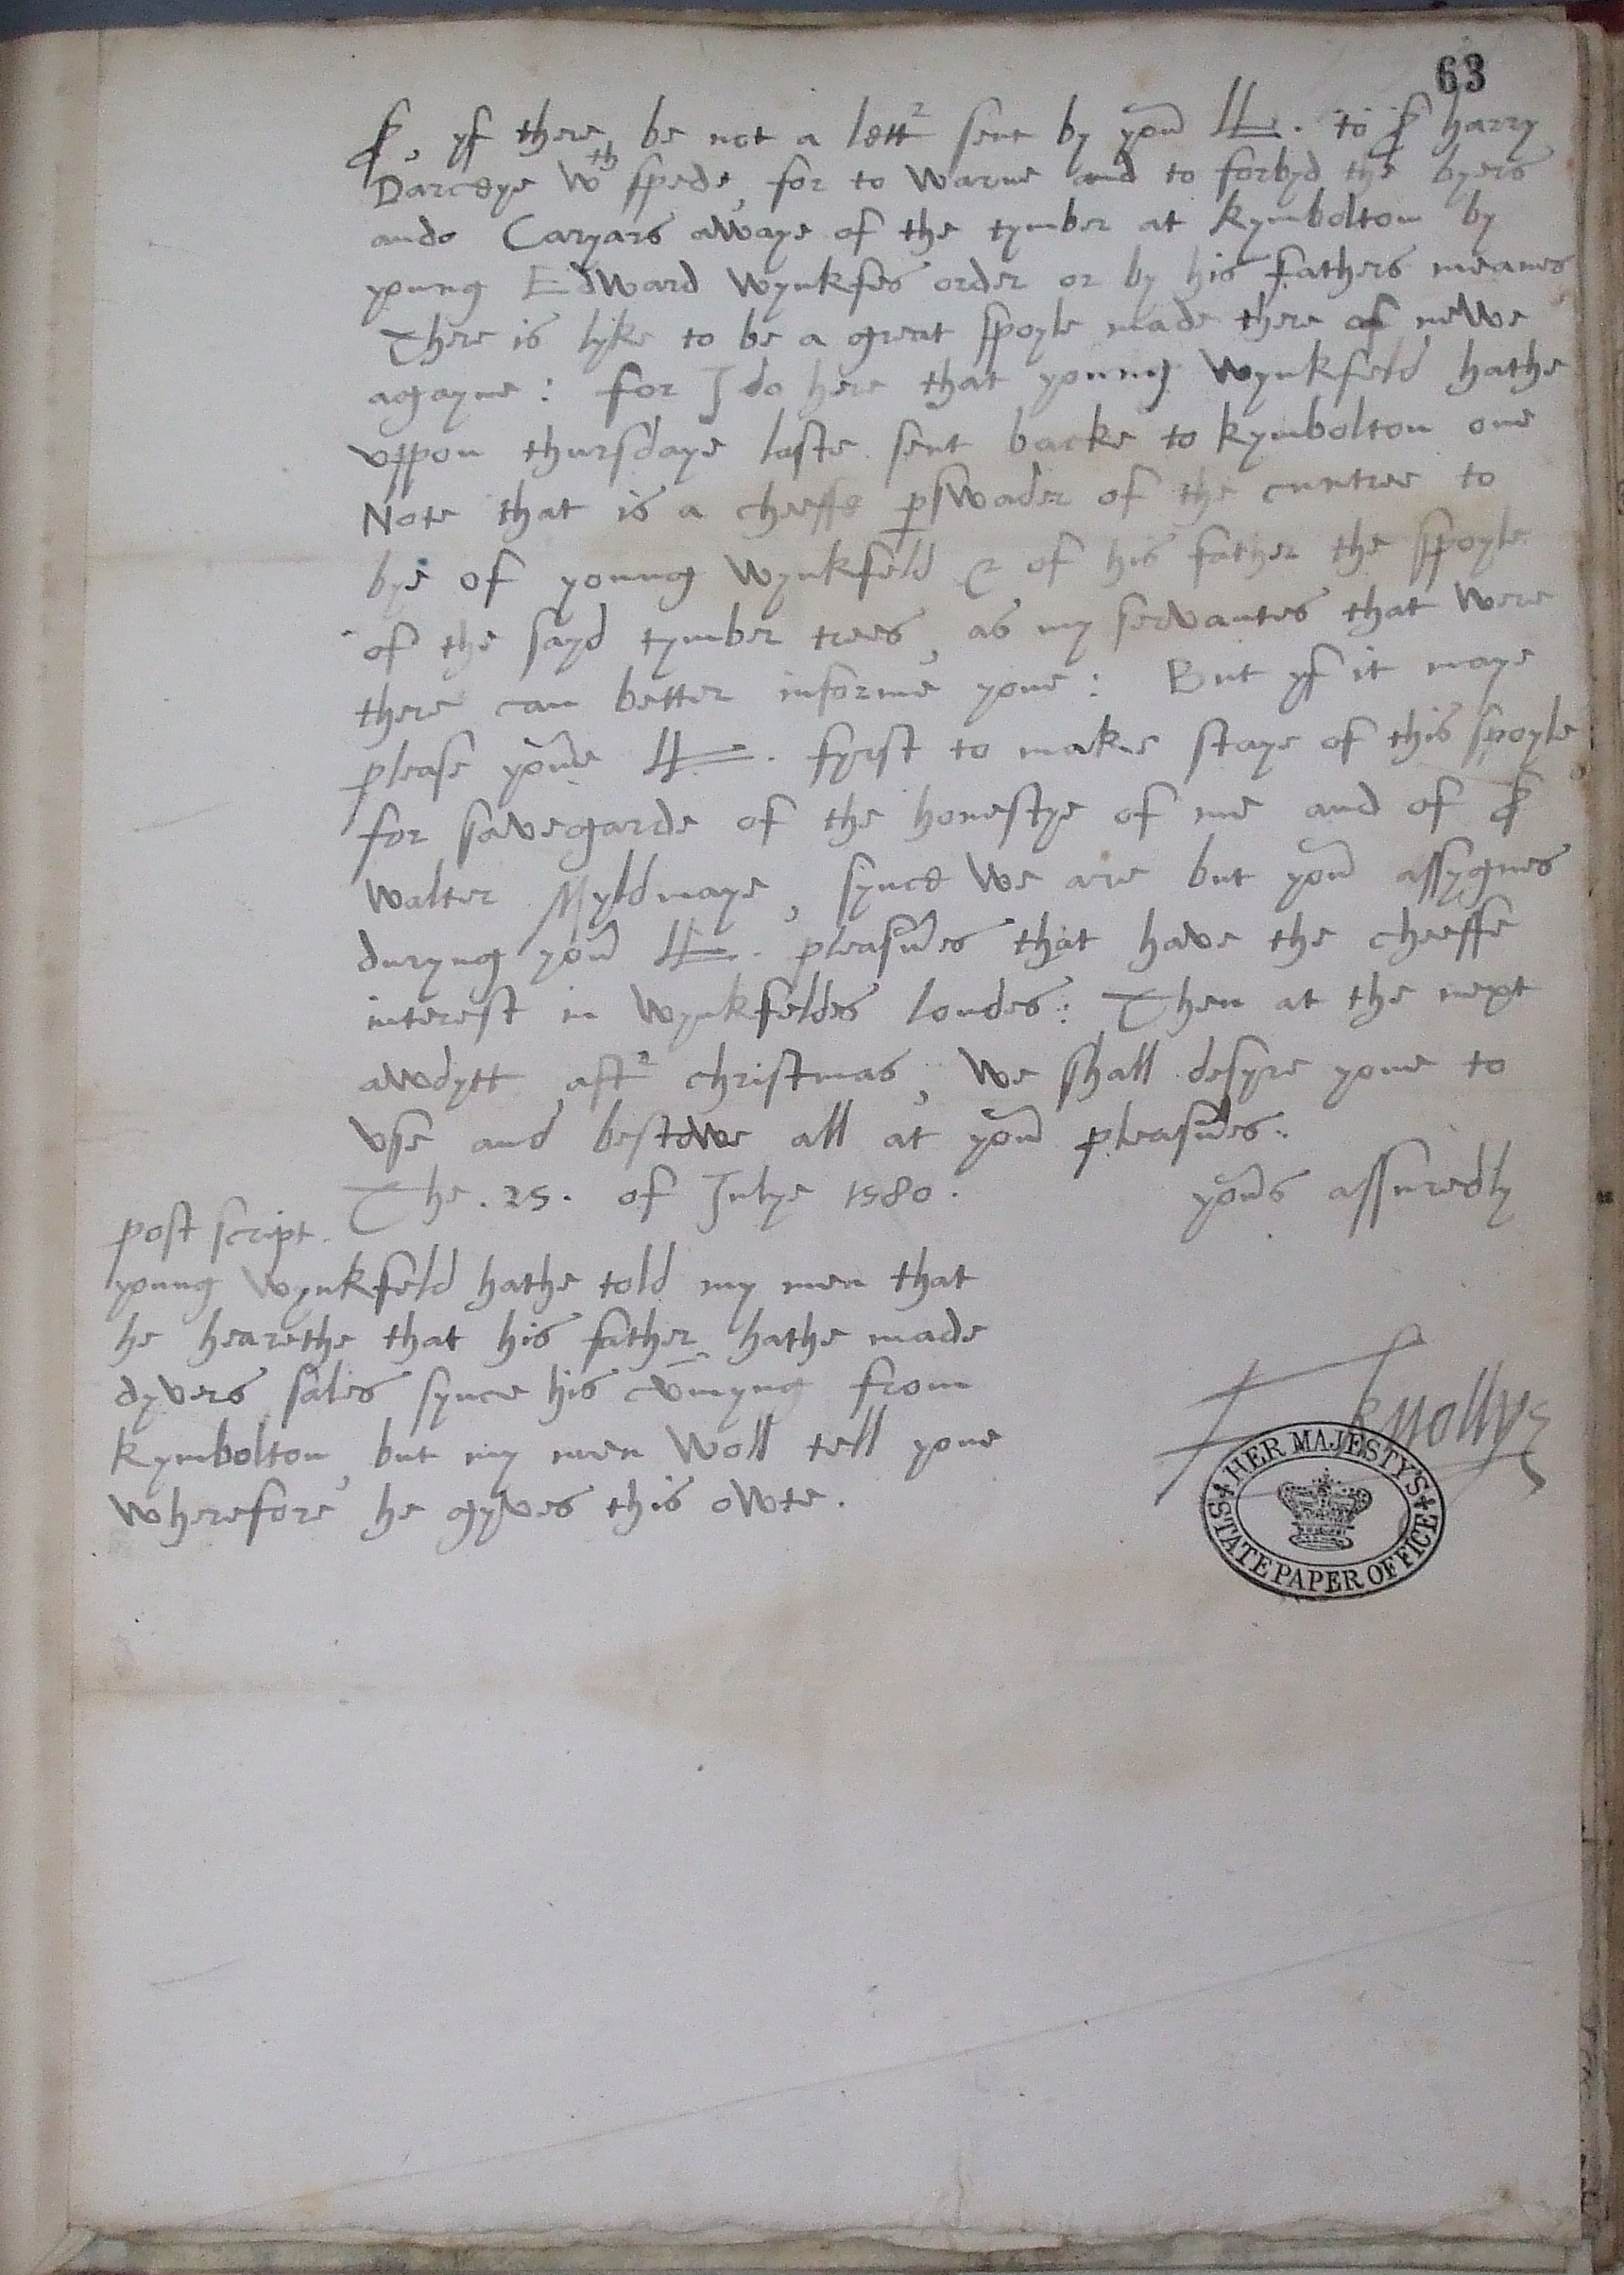 63
Sr, yf there be not a lettr sent by your LL. to Sr harry
Darceye wth spede, for to warne and to forbyd the byers
ande Caryars awaye of the tymber at kymbolton by
young Edward wynkfes order or by his fathers meanes
There is lyke to be a great spoyle made there of newe
agayne : for I do here that young wynkfeld hathe
uppon thursdaye laste sent backe to kymbolton one
Note that is a cheeffe pswader of the cuntree to
bye of young wynkfeld & of his father the spoyle
of the sayd tymber trees, as my servantes that were
there can better informe youe : But yf it maye
please youre LL. fyrst to make staye of this spoyle
for savegarde of the honestye of me and of Sr
walter Myldmaye, synce we are but your assygnes
duryng your LL. pleasures that have the cheeffe
interest in wynkfeldes londes : Then at the next
awdytt aftr christmas, we shall desyre youe to
use and bestowe all at your pleasures :
The . 25 . of Julye 1580 .
yours assuredly
post script .
young wynkfeld hathe told my men that
he hearethe that his father hathe made
dyvers sales synce his cumyng from
kymbolton, but my men woll tell youe
wherefore he gyves this owte .
F knollys
HER MAJESTY'S
STATE PAPER OFFICE